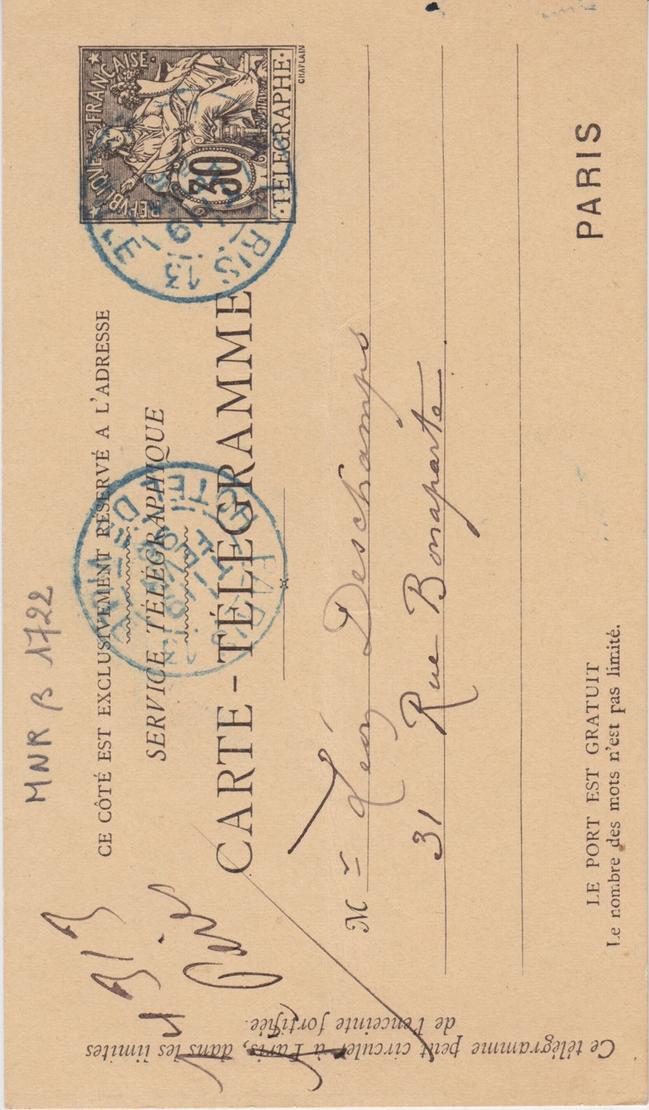 MNR β 1722
CE CÔTÉ EST EXCLUSIVEMENT RÉSERVÉ A L'ADRESSE
SERVICE TÉLÉGRAPHIQUE
CARTE-TÉLÉGRAMME
RÉPUBLIQUE FRANÇAISE
30
TÉLÉGRAPHE
CHAPLAIN
PARIS
13
PARIS
HOTEL DE
Mr Léon Deschamps
31 Rue Bonaparte
PARIS
LE PORT EST GRATUIT
Le nombre des mots n'est pas limité.
Ce télégramme peut circuler à Paris, dans les limites
de l'enceinte fortifiée.